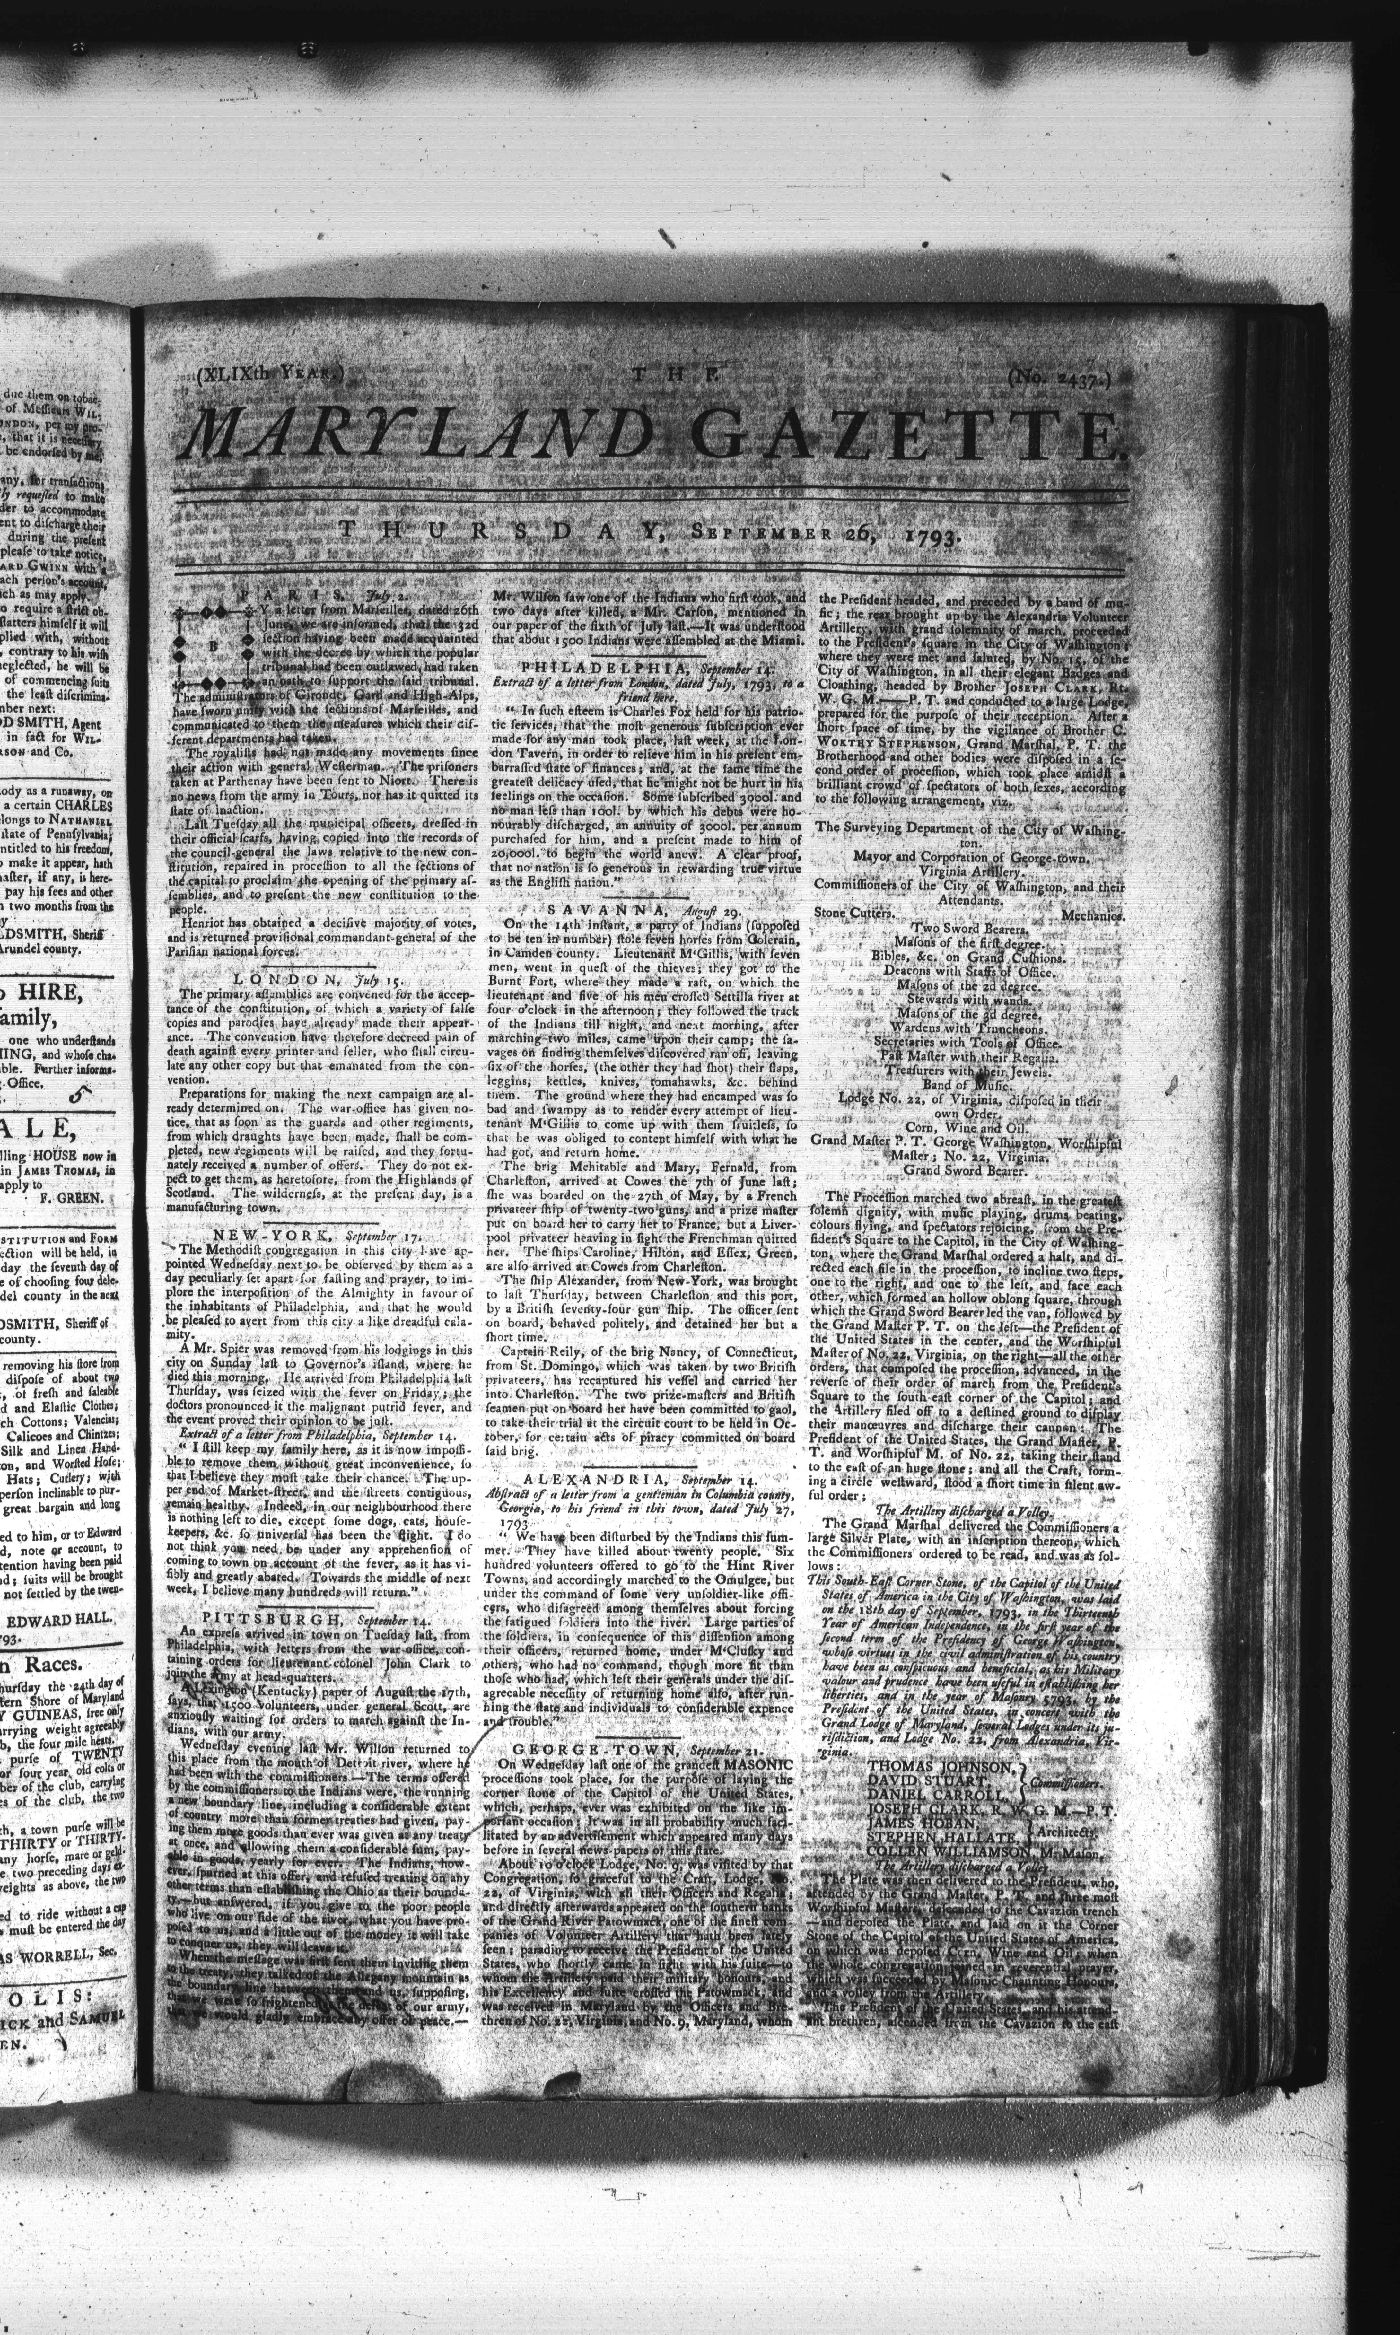 due them on tobac-
of Messieurs WIL-
ONDON, per my pro-
, that it is necessary
be endorsed by me,
any, for transactions
ly requested to make
der to accommodate
ent to discharge their
during the present
please to take notice,
ARD GWINN with a
ach person's account,
ch as may apply.
o require a strict ob-
flatters himself it will
plied with, without
, contrary to his wish
neglected, he will be
of commencing suits
the least discrimina-
mber next:
OD SMITH, Agent
in fact for WIL-
RSON and Co.
ody as a runaway, on
a certain CHARLES
elongs to NATHANIEL
state of Pennsylvania;
ntitled to his freedom,
o make it appear, hath
master, if any, is here-
pay his fees and other
n two months from the
LDSMITH, Sheriff
Arundel county.
O HIRE,
amily,
one who understands
ING, and whose cha-
ble. Further informa-
Office.
5
A L E,
lling HOUSE now in
in JAMES THOMAS, in
apply to
F. GREEN.
STITUTION and FORM
ection will be held, in
day the seventh day of
e of choosing four dele-
del county in the next
DSMITH, Sheriff of
county.
removing his store from
dispose of about two
, of fresh and saleable
d and Elastic Clothes;
ch Cottons; Valencias;
Calicoes and Chintzes;
Silk and Linen Hand-
on, and Worsted Hose;
Hats; Cutlery; with
person inclinable to pur-
great bargain and long
ed to him, or to Edward
d, note or account, to
tention having been paid
nd; suits will be brought
not settled by the twen-
EDWARD HALL.
793.
n Races.
hursday the 24th day of
tern Shore of Maryland
Y GUINEAS, free only
arrying weight agreeably
b, the four mile heats.
purse of TWENTY
or four year, old colts or
ber of the club, carrying
es of the club, the two
th, a town purse will be
THIRTY or THIRTY-
any horse, mare or geld-
e, two preceding days ex-
weights as above, the two
ed to ride without a cap
must be entered the day
AS WORRELL, Sec.
O L I S:
ICK and SAMUEL
EN.
(XLIXth YEAR.)
T H E
(No. 2437.)
MARYLAND GAZETTE.
T H U R S D A Y, SEPTEMBER 26, 1793.
P A R I S, July 2.
BY a letter from Marseilles, dated 26th
June, we are informed, that the 32d
section having been made acquainted
with the decree by which the popular
tribunal had been outlawed, had taken
an oath to support the said tribunal.
The administrators of Gironde, Gard and High-Alps,
have sworn unity with the sections of Marseilles, and
communicated to them the measures which their dif-
ferent departments had taken.
The royalists had not made any movements since
their action with general Westerman. The prisoners
taken at Parthenay have been sent to Niort. There is
no news from the army in Tours, nor has it quitted its
state of inaction.
Last Tuesday all the municipal officers, dressed in
their official scarfs, having copied into the records of
the council-general the laws relative to the new con-
stitution, repaired in procession to all the sections of
the capital to proclaim the opening of the primary as-
semblies, and to present the new constitution to the
people.
Henriot has obtained a decisive majority of votes,
and is returned provisional commandant-general of the
Parisian national forces.
L O N D O N, July 15.
The primary assemblies are convened for the accep-
tance of the constitution, of which a variety of false
copies and parodies have already made their appear-
ance. The convention have therefore decreed pain of
death against every printer and seller, who shall circu-
late any other copy but that emanated from the con-
vention.
Preparations for making the next campaign are al-
ready determined on. The war-office has given no-
tice, that as soon as the guards and other regiments,
from which draughts have been made, shall be com-
pleted, new regiments will be raised, and they fortu-
nately received a number of offers. They do not ex-
pect to get them, as heretofore, from the Highlands of
Scotland. The wilderness, at the present day, is a
manufacturing town.
NEW-YORK, September 17.
The Methodist congregation in this city have ap-
pointed Wednesday next to be observed by them as a
day peculiarly set apart for fasting and prayer, to im-
plore the interposition of the Almighty in favour of
the inhabitants of Philadelphia, and that he would
be pleased to avert from this city a like dreadful cala-
mity.
A Mr. Spier was removed from his lodgings in this
city on Sunday last to Governor's island, where he
died this morning. He arrived from Philadelphia last
Thursday, was seized with the fever on Friday; the
doctors pronounced it the malignant putrid fever, and
the event proved their opinion to be just.
Extract of a letter from Philadelphia, September 14.
" I still keep my family here, as it is now impossi-
ble to remove them without great inconvenience, so
that I believe they must take their chance. The up-
per end of Market-street, and the streets contiguous,
remain healthy. Indeed, in our neighbourhood there
is nothing left to die, except some dogs, cats, house-
keepers, &c. so universal has been the flight. I do
not think you need be under any apprehension of
coming to town on account of the fever, as it has vi-
sibly and greatly abated. Towards the middle of next
week, I believe many hundreds will return."
PITTSBURGH, September 14.
An express arrived in town on Tuesday last, from
Philadelphia, with letters from the war-office, con-
taining orders for lieutenant-colonel John Clark to
join the army at head-quarters.
A Lexington (Kentucky) paper of August the 17th,
says, that 1500 volunteers, under general Scott, are
anxiously waiting for orders to march against the In-
dians, with our army.
Wednesday evening last Mr. Wilson returned to
this place from the mouth of Detroit river, where he
had been with the commissioners.—The terms offered
by the commissioners to the Indians were, the running
a new boundary line, including a considerable extent
of country more than former treaties had given, pay-
ing them more goods than ever was given as any treaty
at once, and allowing them a considerable sum, pay-
able in goods, yearly for ever. The Indians, how-
ever, spurned at this offer, and refused treating on any
other terms than establishing the Ohio as their bounda-
ry,—but answered, if you give to the poor people
who live on our side of the river, what you have pro-
posed to us, and a little out of the money it will take
to conquer us, they will leave it.
When the message was first sent them inviting them
to the treaty, they talked of the Allegany mountain as
the boundary line between them and us, supposing,
that we were so frightened the defeat of our army,
that we would gladly embrace any offer of peace.—
Mr. Wilson saw one of the Indians who first took, and
two days after killed, a Mr. Carson, mentioned in
our paper of the sixth of July last.—It was understood
that about 1500 Indians were assembled at the Miami.
PHILADELPHIA, September 14.
Extract of a letter from London, dated July, 1793, to a
friend here.
" In such esteem is Charles Fox held for his patrio-
tic services, that the most generous subscription ever
made for any man took place, last week, at the Lon-
don Tavern, in order to relieve him in his present em-
barrassed state of finances; and, at the same time the
greatest delicacy used, that he might not be hurt in his
feelings on the occasion. Some subscribed 3000l. and
no man less than 100l. by which his debts were ho-
nourably discharged, an annuity of 3000l. per annum
purchased for him, and a present made to him of
20,000l. to begin the world anew. A clear proof,
that no nation is so generous in rewarding true virtue
as the English nation."
S A V A N N A, August 29.
On the 14th instant, a party of Indians (supposed
to be ten in number) stole seven horses from Golerain,
in Camden county. Lieutenant M'Gillis, with seven
men, went in quest of the thieves; they got to the
Burnt Fort, where they made a raft, on which the
lieutenant and five of his men crossed Settilla river at
four o'clock in the afternoon; they followed the track
of the Indians till night, and next morning, after
marching two miles, came upon their camp; the sa-
vages on finding themselves discovered ran off, leaving
six of the horses, (the other they had shot) their flaps,
leggins, kettles, knives, tomahawks, &c. behind
them. The ground where they had encamped was so
bad and swampy as to render every attempt of lieu-
tenant M'Gillis to come up with them fruitless, so
that he was obliged to content himself with what he
had got, and return home.
The brig Mehitable and Mary, Fernald, from
Charleston, arrived at Cowes the 7th of June last;
she was boarded on the 27th of May, by a French
privateer ship of twenty-two guns, and a prize master
put on board her to carry her to France, but a Liver-
pool privateer heaving in sight the Frenchman quitted
her. The ships Caroline, Hilton, and Essex, Green,
are also arrived at Cowes from Charleston.
The ship Alexander, from New-York, was brought
to last Thursday, between Charleston and this port,
by a British seventy-four gun ship. The officer sent
on board, behaved politely, and detained her but a
short time.
Captain Reily, of the brig Nancy, of Connecticut,
from St. Domingo, which was taken by two British
privateers, has recaptured his vessel and carried her
into Charleston. The two prize-masters and British
seamen put on board her have been committed to gaol,
to take their trial at the circuit court to be held in Oc-
tober, for certain acts of piracy committed on board
said brig.
ALEXANDRIA, September 14.
Abstract of a letter from a gentleman in Columbia county,
Georgia, to his friend in this town, dated July 27,
1793.
" We have been disturbed by the Indians this sum-
mer. They have killed about twenty people. Six
hundred volunteers offered to go to the Hint River
Towns, and accordingly marched to the Omulgee, but
under the command of some very unsoldier-like offi-
cers, who disagreed among themselves about forcing
the fatigued soldiers into the river. Large parties of
the soldiers, in consequence of this dissension among
their officers, returned home, under M'Clusky and
others, who had no command, though more fit than
those who had, which left their generals under the dis-
agreeable necessity of returning home also, after run-
ning the state and individuals to considerable expence
and trouble."
GEORGE-TOWN, September 21.
On Wednesday last one of the grandest MASONIC
processions took place, for the purpose of laying the
corner stone of the Capitol of the United States,
which, perhaps, ever was exhibited on the like im-
portant occasion: It was in all probability much faci-
litated by an advertisement which appeared many days
before in several news-papers of this state.
About 10 o'clock Lodge, No. 9, was visited by that
Congregation, so graceful to the Craft, Lodge, No.
22, of Virginia, with all their Officers and Regalia;
and directly afterwards appeared on the southern banks
of the Grand River Patowmack, one of the finest com-
panies of Volunteer Artillery that hath been lately
seen; parading to receive the President of the United
States, who shortly came in sight with his suite—to
whom the Artillery paid their military honours, and
his Excellency and suite crossed the Patowmack, and
was received in Maryland by the Officers and Bre-
thren of No. 22, Virginia, and No. 9, Maryland, whom
the President headed, and preceded by a band of mu-
sic; the rear brought up by the Alexandria Volunteer
Artillery, with grand solemnity of march, proceeded
to the President's square in the City of Washington:
where they were met and saluted, by No. 15, of the
City of Washington, in all their elegant Badges and
Cloathing, headed by Brother JOSEPH CLARK, Rt.
W. G. M.——P. T. and conducted to a large Lodge,
prepared for the purpose of their reception. After a
short space of time, by the vigilance of Brother C.
WORTHY STEPHENSON, Grand Marshal, P. T. the
Brotherhood and other bodies were disposed in a se-
cond order of procession, which took place amidst a
brilliant crowd of spectators of both sexes, according
to the following arrangement, viz.
The Surveying Department of the City of Washing-
ton.
Mayor and Corporation of George-town.
Virginia Artillery.
Commissioners of the City of Washington, and their
Attendants.
Stone Cutters. Mechanics.
Two Sword Bearers.
Masons of the first degree.
Bibles, &c. on Grand Cushions.
Deacons with Staffs of Office.
Masons of the 2d degree.
Stewards with wands.
Masons of the 3d degree.
Wardens with Truncheons.
Secretaries with Tools of Office.
Past Master with their Regalia.
Treasurers with their Jewels.
Band of Music.
Lodge No. 22, of Virginia, disposed in their
own Order.
Corn, Wine and Oil.
Grand Master P. T. George Washington, Worshipful
Master; No. 22, Virginia.
Grand Sword Bearer.
The Procession marched two abreast, in the greatest
solemn dignity, with music playing, drums beating,
colours flying, and spectators rejoicing, from the Pre-
sident's Square to the Capitol, in the City of Washing-
ton, where the Grand Marshal ordered a halt, and di-
rected each file in the procession, to incline two steps,
one to the right, and one to the left, and face each
other, which formed an hollow oblong square, through
which the Grand Sword Bearer led the van, followed by
the Grand Master P. T. on the left—the President of
the United States in the center, and the Worshipful
Master of No. 22, Virginia, on the right—all the other
orders, that composed the procession, advanced, in the
reverse of their order of march from the President's
Square to the south-east corner of the Capitol; and
the Artillery filed off to a destined ground to display
their manœuvres and discharge their cannon: The
President of the United States, the Grand Master, P.
T. and Worshipful M. of No. 22, taking their stand
to the east of an huge stone; and all the Craft, form-
ing a circle westward, stood a short time in silent aw-
ful order;
The Artillery discharged a Volley.
The Grand Marshal delivered the Commissioners a
large Silver Plate, with an inscription thereon, which
the Commissioners ordered to be read, and was as fol-
lows:
This South-East Corner Stone, of the Capitol of the United
States of America in the City of Washington, was laid
on the 18th day of September, 1793, in the Thirteenth
Year of American Independence, in the first year of the
second term of the Presidency of George Washington,
whose virtues in the civil administration of his country
have been as conspicuous and beneficial, as his Military
valour and prudence have been useful in establishing her
liberties, and in the year of Masonry 5793, by the
President of the United States, in concert with the
Grand Lodge of Maryland, several Lodges under its ju-
risdiction, and Lodge No. 22, from Alexandria, Vir-
ginia.
THOMAS JOHNSON,
DAVID STUART, Commissioners.
DANIEL CARROLL,
JOSEPH CLARK, R. W. G. M.—P. T.
JAMES HOBAN,
STEPHEN HALLATE, Architects.
COLLEN WILLIAMSON, M. Mason.
The Artillery discharged a Volley.
The Plate was then delivered to the President, who,
attended by the Grand Master, P. T. and three most
Worshipful Masters, descended to the Cavazion trench
—and deposed the Plate, and laid on it the Corner
Stone of the Capitol of the United States of America,
on which was deposed Corn, Wine and Oil; when
the whole congregation joined in reverential prayer,
which was succeeded by Masonic Chaunting Honours,
and a volley from the Artillery.
The President of the United States, and his attend-
ant brethren, ascended from the Cavazion to the east